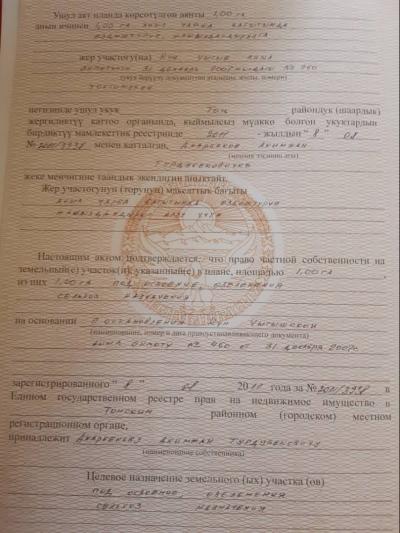 Ушул акт планда көрсөтүлгөн аянты 1,00 га
анын ичинен 1,00 га айыл чарба багытында
өздөштүрүү, көгөлдөндүрүүгө
жер участогу(на) Күн чыгыш айыл
өкмөтүнүн 31 декабрь 2007-жылдагы № 960
(укук берүүчү документтин аталышы, датасы, номери)
токтомунун
негизинде ушул укук Токмок райондук (шаардык)
жергиликтүү каттоо органында, кыймылсыз мүлккө болгон укуктардын
бирдиктүү мамлекеттик реестринде 2011 - жылдын " 8 " 08
№ 2011/3938 менен катталган,
(менчик ээсинин аты)
жеке менчигине таандык экендигин аныктайт.
Жер участогунун (торунун) максаттык багыты
айыл чарба багытында өздөштүрүп
Настоящим актом подтверждается, что право частной собственности на
земельный(е) участок(и), указанный(е) в плане, площадью 1,00 га,
из них 1,00 га под освоение, озеленения
сельхоз назначения
на основании Постановления Кун Чыгышской
(наименование, номер и дата правоустанавливающего документа)
айыл окмоту №960 от 31 декабря 2007г.
зарегистрированного " 8 " 08 2011 года за № 2011/3938 в
Едином государственном реестре прав на недвижимое имущество в
районном (городском) местном
регистрационном органе,
принадлежит
(наименование собственника)
Целевое назначение земельного (ых) участка (ов)
под освоение, озеленения
сельхоз назначения